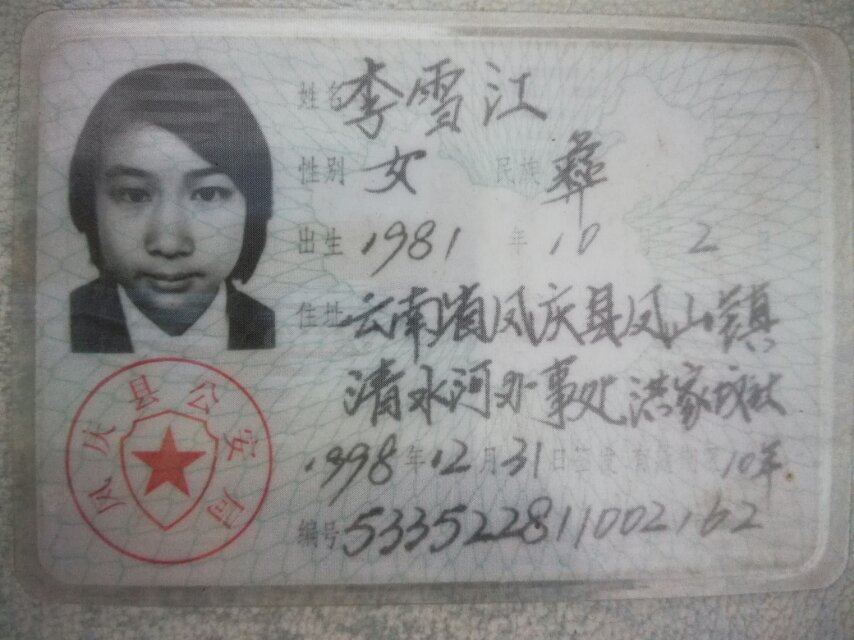 姓名 李雪江
性别 女 民族 彝
出生 1981 年 10 月 2
住址 云南省凤庆县凤山镇
清水河办事处洪家
1998年12月31日签发 有效期限10年
编号 533522811002162
凤庆县公安局